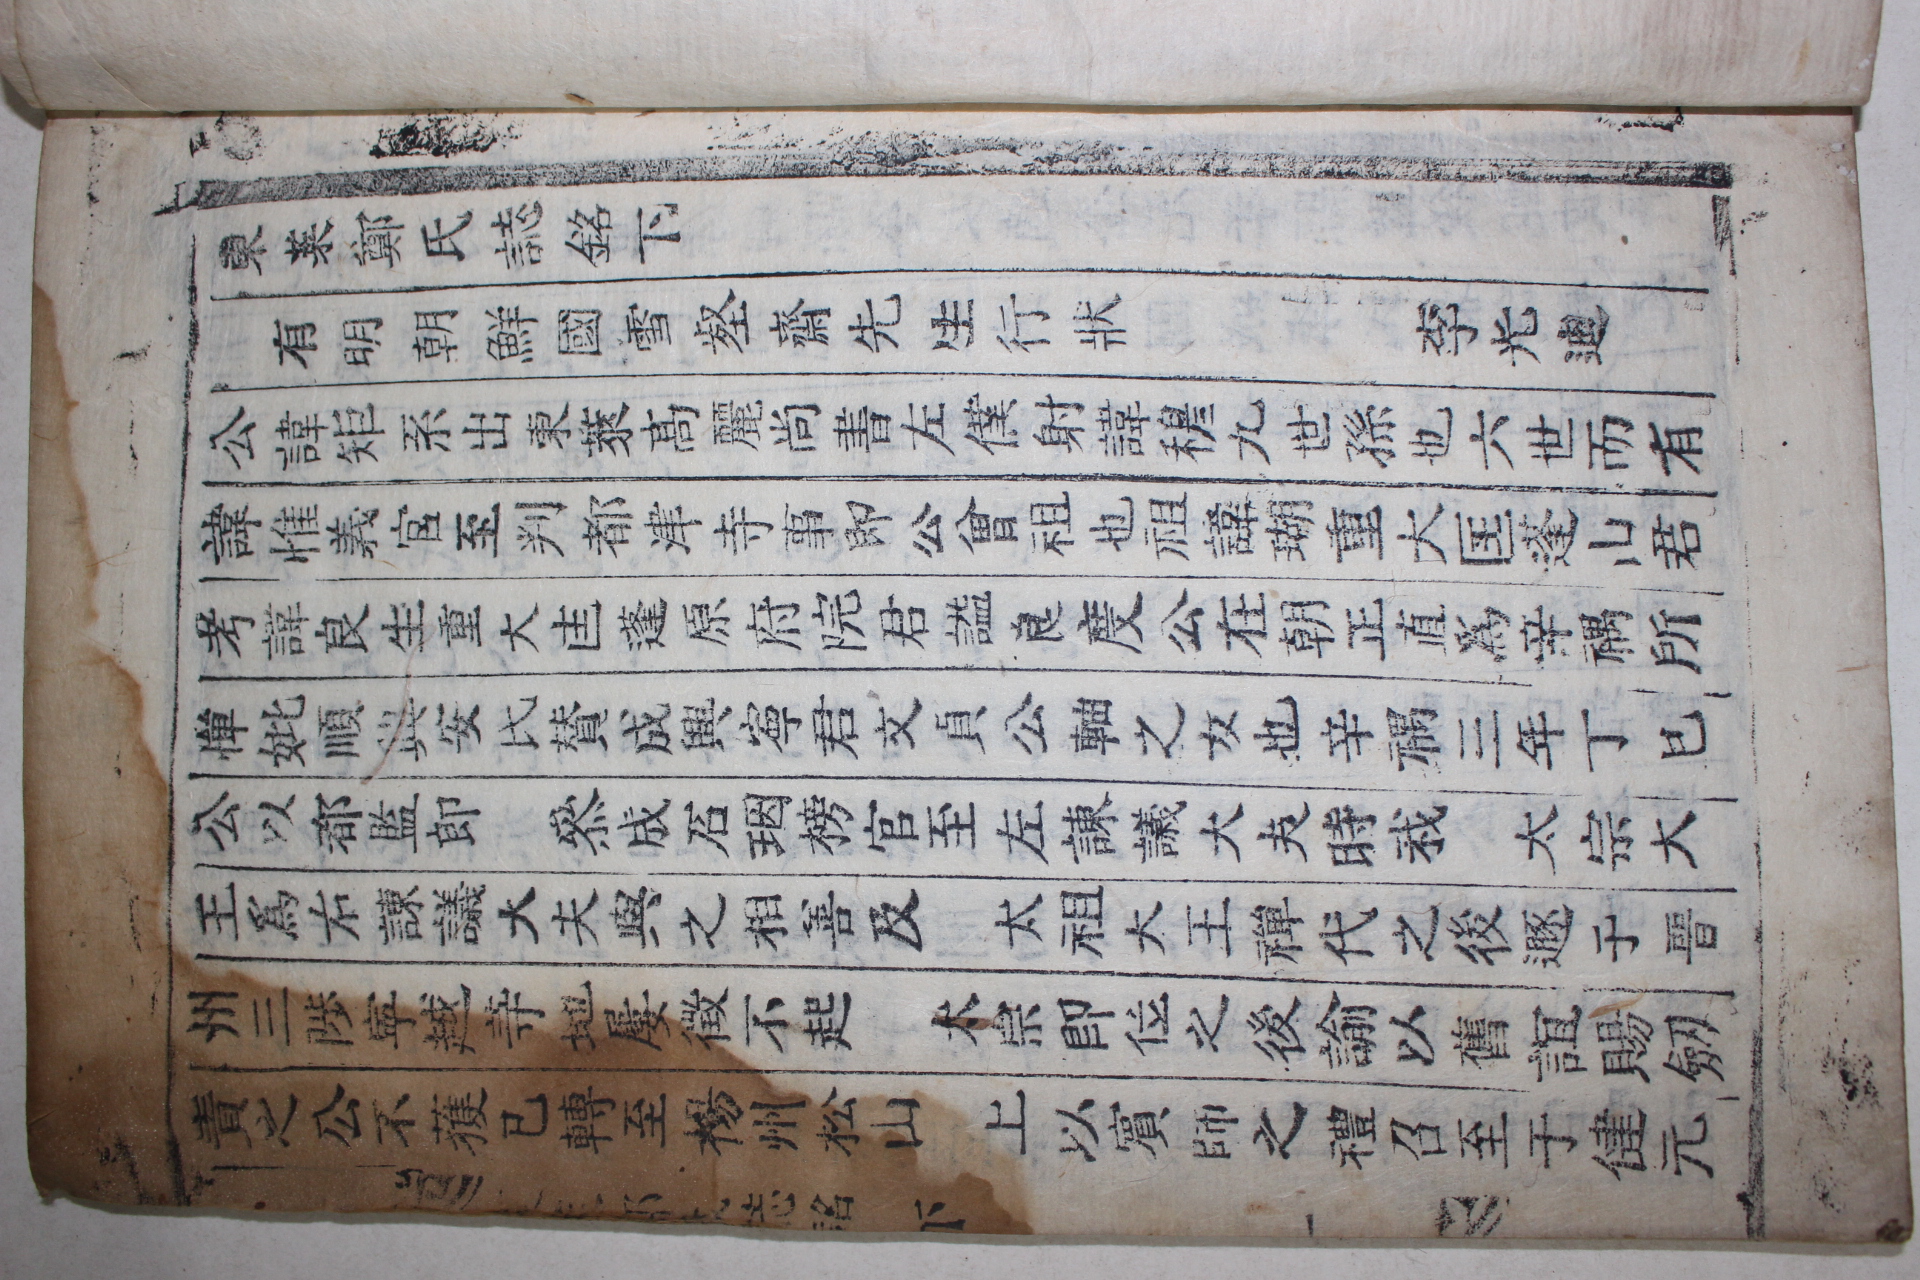 東萊鄭氏誌銘下
有明朝鮮國雪壑齋先生行狀 李光迪
公諱矩系出東萊高麗尚書左僕射諱穆九世孫也六世而有
諱惟義官至判都津寺事即公曾祖也祖諱瑚重大匡蓬山君
考諱良生重大匡蓬原府院君諡良度公在朝正直爲辛禑所
憚妣順興安氏贊成興寧君文貞公軸之女也辛禑三年丁巳
公以都監郞 叅成石珚榜官至左諫議大夫時我 太宗大
王爲右諫議大夫與之相善及 太祖大王禪代之後遯于晉
州三陟寧越寺地屢徵不起 太宗即位之後諭以舊誼賜劒
責之公不獲已轉至楊州松山 上以賓師之禮召至于健元
誌銘 下 一